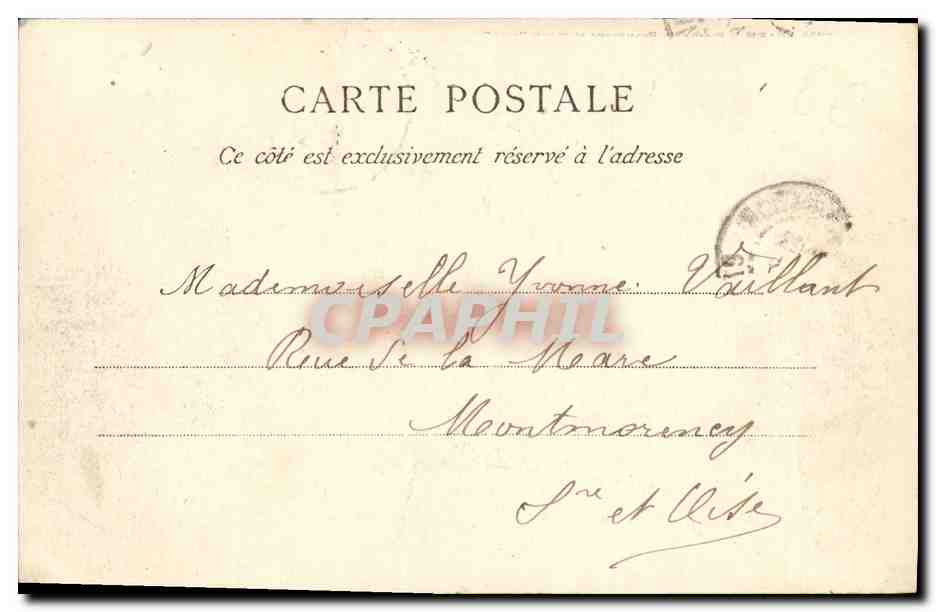 CARTE POSTALE
Ce côté est exclusivement réservé à l'adresse
Mademoiselle Yvonne Vaillant
CPAPHIL
Rue de la Mare
Montmorency
Sre et Oise